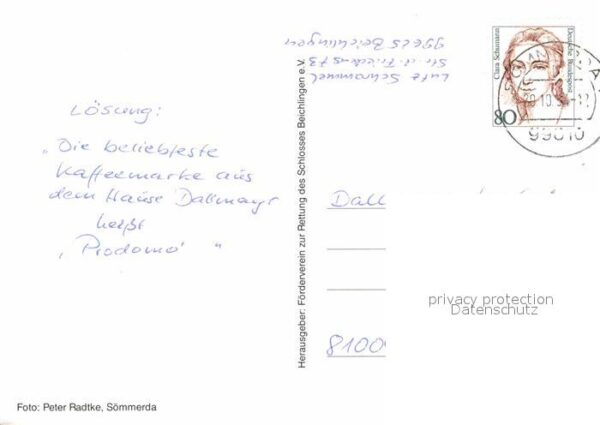 Lösung:
"Die beliebteste
Kaffeemarke aus
dem Hause Dallmayr
heißt
"Prodomo" "
Foto: Peter Radtke, Sömmerda
Herausgeber: Förderverein zur Rettung des Schlosses Beichlingen e.V.
Lutz Schrammel
Str. d. Friedens 73
99625 Beichlingen
Clara Schumann
Deutsche Bundespost
80
99610
Dall
8100
privacy protection
Datenschutz